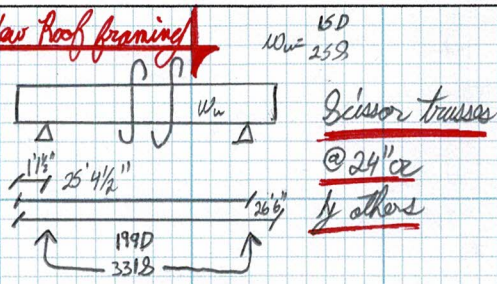 Roof framing
Wu=
15D
25S
Wu
Scissor trusses
@ 24" oc
by others
1'1½"
25'4½"
26'6"
199D
331S